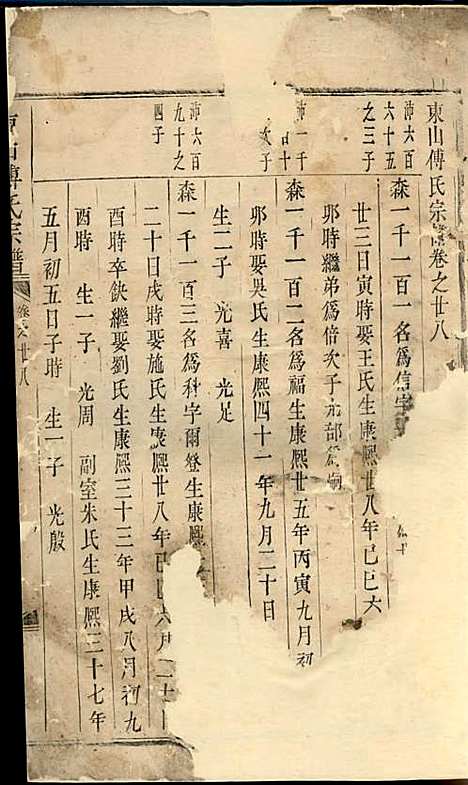 東山傅氏宗譜卷之廿八
沛六百
六十五
之三子
森一千一百一名爲信字
廿三日寅時娶王氏生康熙廿八年己巳六
卯時繼弟爲倍次子
沛一千
次子
森一千一百二名爲福生康熙廿五年丙寅九月初
卯時娶吳氏生康熙四十一年九月二十日
生二子 光喜 光足
沛六百
九十之
四子
森一千一百三名爲科字爾登生康熙
二十日戌時娶施氏生康熙廿八年己巳六月二十
酉時卒缺繼娶劉氏生康熙三十三年甲戌八月初九
酉時 生一子 光周 副室朱氏生康熙三十七年
五月初五日子時 生一子 光殷
東山傅氏宗譜
卷之廿八